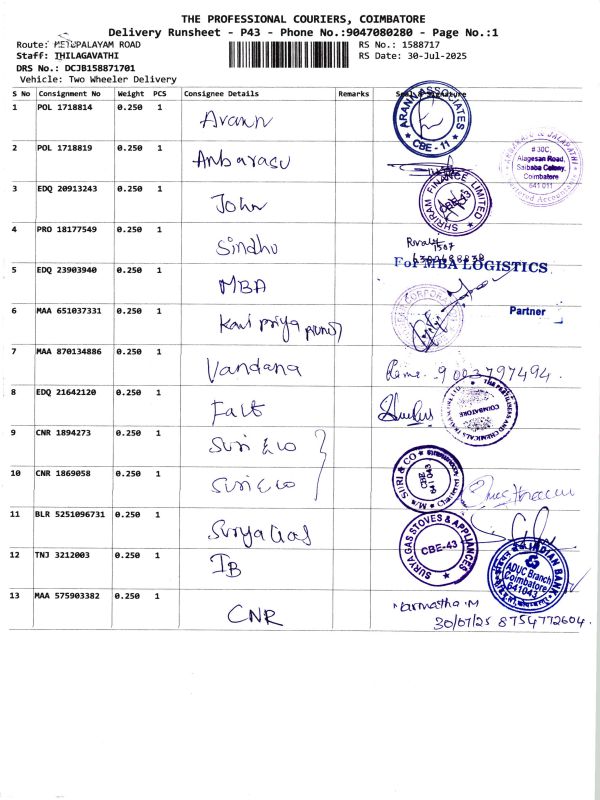 THE PROFESSIONAL COURIERS, COIMBATORE
Delivery Runsheet - P43 - Phone No.:9047080280 - Page No.:1
Route: METUPALAYAM ROAD
RS No.: 1588717
Staff: THILAGAVATHI
RS Date: 30-Jul-2025
DRS No.: DCJB158871701
Vehicle: Two Wheeler Delivery
S No Consignment No Weight PCS Consignee Details Remarks Seal & Signature
1 POL 1718814 0.250 1 Arann
ARANN ASSOCIATES
CBE - 11
2 POL 1718819 0.250 1 Anbarasu
# 30C,
Alagesan Road,
Saibaba Colony,
Coimbatore
641 011
3 EDQ 20913243 0.250 1 John
SHRIRAM FINANCE LIMITED
CBE-43
4 PRO 18177549 0.250 1 Sindhu
5 EDQ 23903940 0.250 1 MBA
For MBA LOGISTICS
Partner
6 MAA 651037331 0.250 1 Kani priya
7 MAA 870134886 0.250 1 Vandana
9003797494
8 EDQ 21642120 0.250 1 Fact
COIMBATORE
9 CNR 1894273 0.250 1 Suri & co
10 CNR 1869058 0.250 1 Suri & co
M/s SURI & CO
11 BLR 5251096731 0.250 1 Surya Gas
SURYA GAS STOVES & APPLIANCES
CBE-43
12 TNJ 3212003 0.250 1 IB
INDIAN BANK
ADUC Branch
Coimbatore
641043
13 MAA 575903382 0.250 1 CNR
Narmatha.M
30/07/25 8754772604.